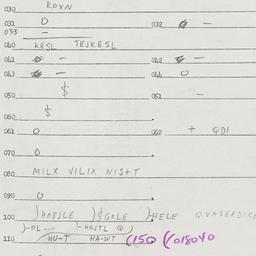 030 KOXN
031 0 032 –
033 –
040 KESL TEJKESL
041 – 042 –
043 – 044 0
050 $ 051 –
060 $
061 0 062 + QDI
070 0
080 MILX VILIX NIS+T
090 0
100 )HOBJLE )$GOLE )HELE
)-DL -- )-HAJTL Q)
110 HU-T HA-WT (15Q (/018040